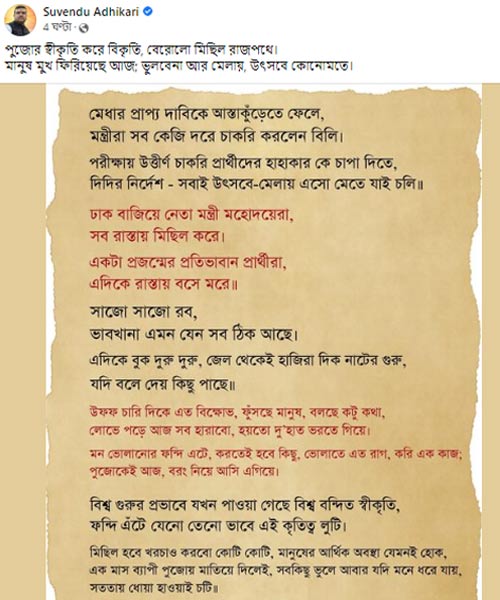 Suvendu Adhikari
4 ঘণ্টা ·
পুজোর স্বীকৃতি করে বিকৃতি, বেরোলো মিছিল রাজপথে।
মানুষ মুখ ফিরিয়েছে আজ; ভুলবেনা আর মেলায়, উৎসবে কোনোমতে।
মেধার প্রাপ্য দাবিকে আস্তাকুঁড়েতে ফেলে,
মন্ত্রীরা সব কেজি দরে চাকরি করলেন বিলি।
পরীক্ষায় উত্তীর্ণ চাকরি প্রার্থীদের হাহাকার কে চাপা দিতে,
দিদির নির্দেশ - সবাই উৎসবে-মেলায় এসো মেতে যাই চলি॥
ঢাক বাজিয়ে নেতা মন্ত্রী মহোদয়েরা,
সব রাস্তায় মিছিল করে।
একটা প্রজন্মের প্রতিভাবান প্রার্থীরা,
এদিকে রাস্তায় বসে মরে॥
সাজো সাজো রব,
ভাবখানা এমন যেন সব ঠিক আছে।
এদিকে বুক দুরু দুরু, জেল থেকেই হাজিরা দিক নাটের গুরু,
যদি বলে দেয় কিছু পাছে॥
উফফ চারি দিকে এত বিক্ষোভ, ফুঁসছে মানুষ, বলছে কটু কথা,
লোভে পড়ে আজ সব হারাবো, হয়তো দু'হাত ভরতে গিয়ে।
মন ভোলানোর ফন্দি এটে, করতেই হবে কিছু, ভোলাতে এত রাগ, করি এক কাজ;
পুজোকেই আজ, বরং নিয়ে আসি এগিয়ে।
বিশ্ব গুরুর প্রভাবে যখন পাওয়া গেছে বিশ্ব বন্দিত স্বীকৃতি,
ফন্দি এঁটে যেনো তেনো ভাবে এই কৃতিত্ব লুটি।
মিছিল হবে খরচাও করবো কোটি কোটি, মানুষের আর্থিক অবস্থা যেমনই হোক,
এক মাস ব্যাপী পুজোয় মাতিয়ে দিলেই, সবকিছু ভুলে আবার যদি মনে ধরে যায়,
সততায় ধোয়া হাওয়াই চটি॥